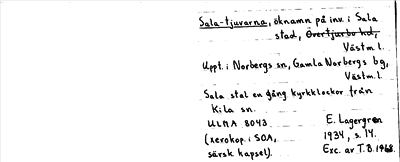 Sala-tjuvarna, öknamn på inv. i Sala
stad, Övertjurbo hd,
Västm l.
Uppt. i Norbergs sn, Gamla Norbergs bg,
Västm. l.
Sala stal en gång kyrkklockor från
Kila sn.
ULMA 8043 E. Lagergren
(xerokop. i SOA, 1934, s. 14.
särsk kapsel). Exc. av T.B. 1968.